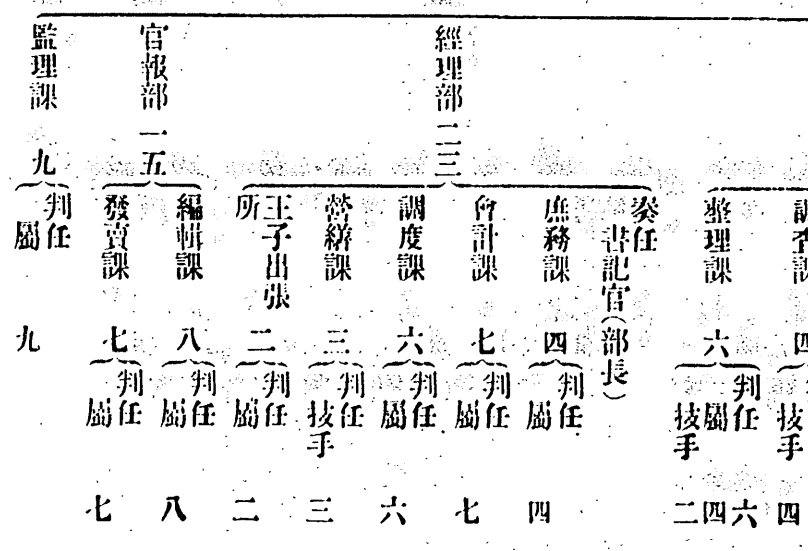 調査課 四
技手 四
整理課 六
判任 六
屬 四
技手 二
經理部 二三
奏任
書記官(部長)
庶務課 四
判任
屬 四
會計課 七
判任
屬 七
調度課 六
判任
屬 六
營繕課 三
判任
技手 三
王子出張所 二
判任
屬 二
官報部 一五
編輯課 八
判任
屬 八
發賣課 七
判任
屬 七
監理課 九
判任
屬 九